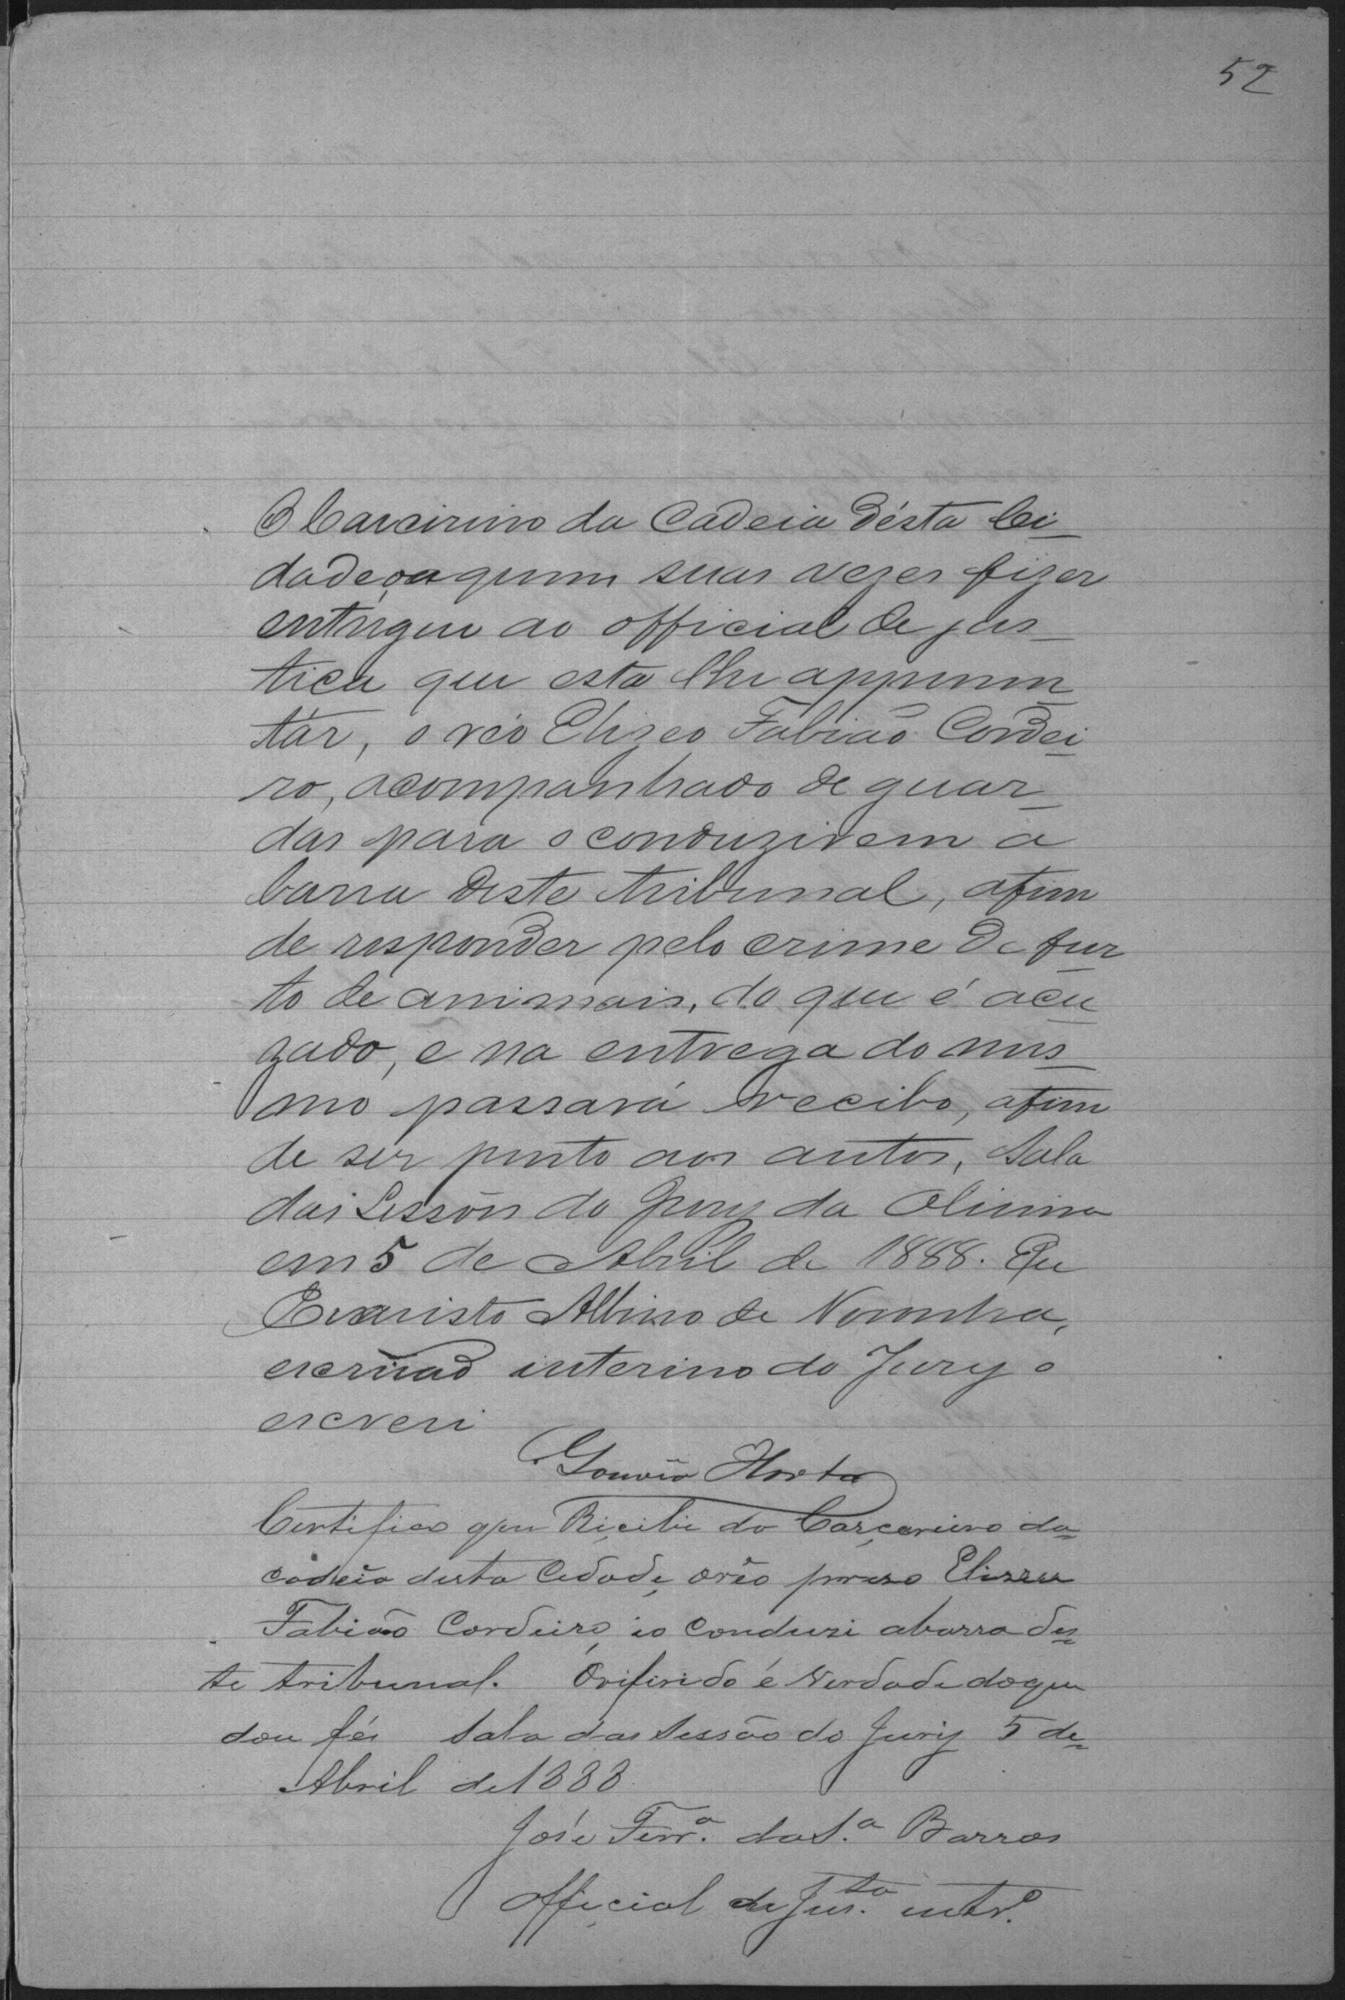 52
O Carcireiro da Cadeia désta Ci-
dade, ou quem suas vezes fizer
entregue ao official de jus-
tica que esta lhe apprezen-
tár, o réo Elizeo Fabião Cordei-
ro, acompanhado de guar-
das para o conduzirem a
barra deste tribunal, afim
de responder pelo crime de fur-
to de animais, do que é acu-
zado, e na entrega do mes-
mo passará recibo, afim
de ser junto aos autos, Sala
das Sessões do Jury da
em 5 de Abril de 1888. Eu
Evaristo Albino de Noronha,
escrivão interino do Jury o
escrevi
Gouvêa Horta
Certifico que Recibi do Carçereiro da
cadeia desta Cidade, oréo prezo Elizeu
Fabião Cordeiro, io Conduzi abarra des-
te tribunal. Orifirido é Verdade doque
dou féi Sala das Sessão do Jury 5 de
Abril de 1888
José Ferr.ª da S.ª Barros
Official de Jus.ta intr.º